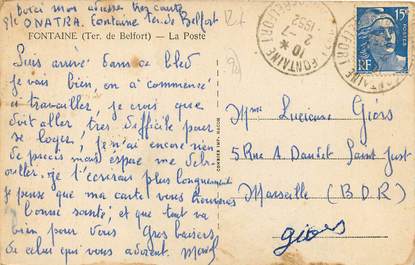 Voici mon adresse très courte
S/C ONATRA. Fontaine Ter. de Belfort
FONTAINE (Ter. de Belfort) — La Poste
Suis arrivé dans ce bled
je vais bien, on a commencé
à travailler, je crois que
doit aller très difficile pour
se loger, je n'ai encore rien
de précis mais espère me débr-
ouiller. je t'écrirai plus longuement
je pense que ma carte vous trouvera
en bonne santé, et que tout va
bien pour vous Gros baisers
de celui qui vous adorent.
FONTAINE
10
2-7
1952
BELFORT
15F
RF
Mme Lucienne Giors
5 Rue A. Daudet Saint Just
Marseille (B.D.R)
Giors